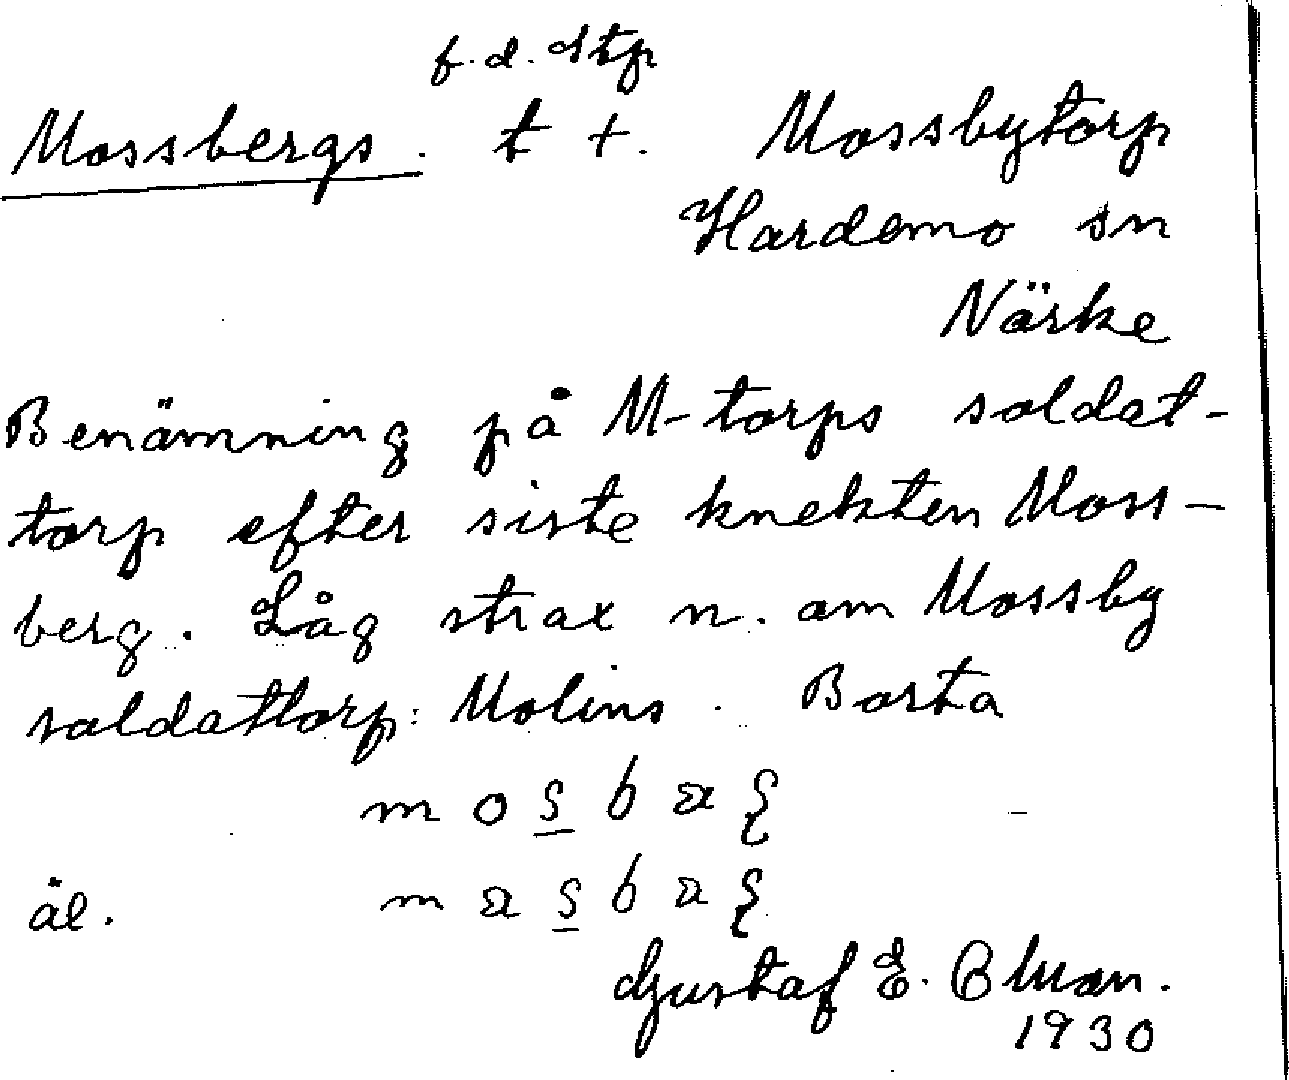 f.d. Stp
Mossbergs. t +. Mossbytorp
Hardemo sn
Närke
Benämning på M-torps soldat-
torp efter siste knekten Moss-
berg. Låg strax n. om Mossby
soldattorp: Molins. Borta
m o s b æ ʂ
äl. m æ s b æ ʂ
Gustaf E.
1930